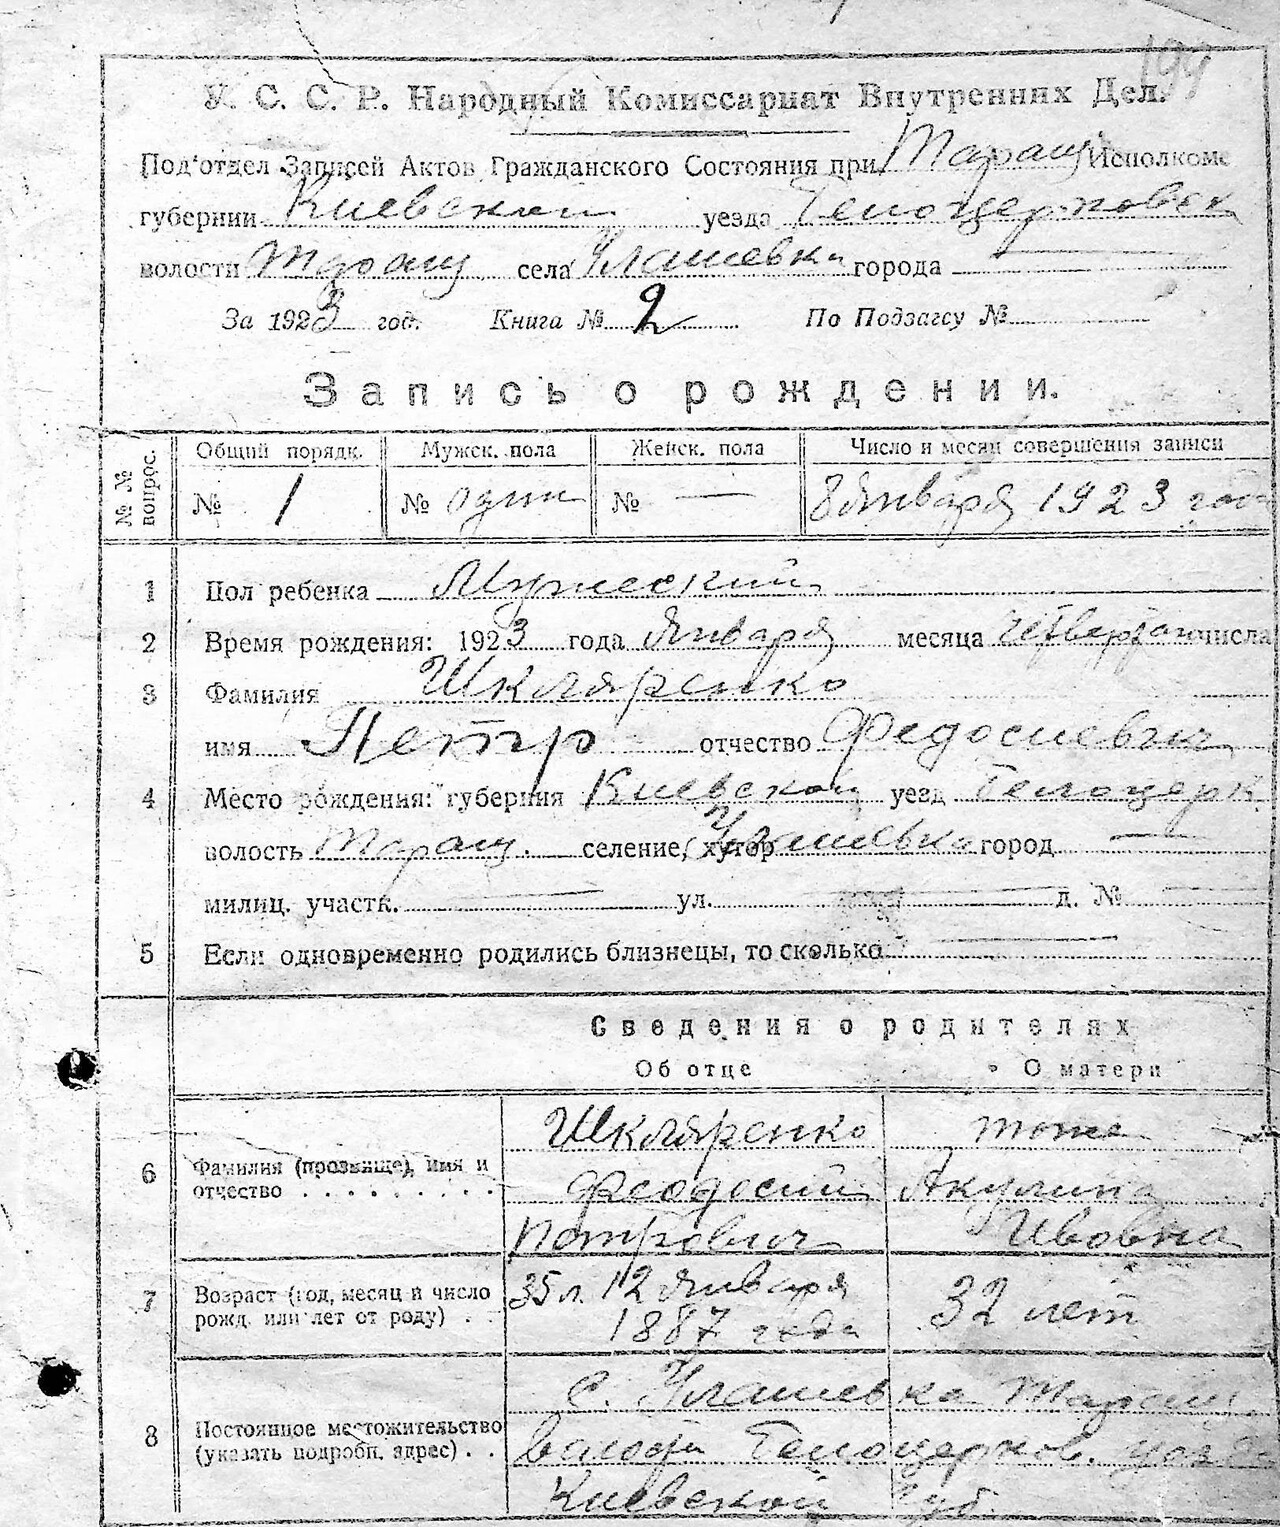 199
У. С. С. Р. Народный Комиссариат Внутренних Дел.
Под'отдел Записей Актов Гражданского Состояния при Таращ Исполкоме
губернии Киевской уезда Белоцерковск
волости Таращ села Улашевки города
За 1923 год. Книга № 2 По Подзагсу №
Запись о рождении.
№ № вопрос. Общий порядк. Мужск. пола Женск. пола Число и месяц совершения записи
№ 1 № один № — 8 Января 1923 года
1 Пол ребенка Мужеский
2 Время рождения: 1923 года Января месяца четвертого числа
3 Фамилия Шкляренко
имя Петр отчество Федосиевич
4 Место рождения: губерния Киевской уезд Белоцерк
волость Таращ. селение, хутор Улашевка город —
милиц. участк. — ул. — д. № —
5 Если одновременно родились близнецы, то сколько —
Сведения о родителях
Об отце О матери
6 Фамилия (прозвище), имя и отчество Шкляренко Феодосий Петрович тоже Акулина Ивовна
7 Возраст (год, месяц и число рожд. или лет от роду) 35 л. 12 Января 1887 года 32 лет
8 Постоянное местожительство (указать подробн. адрес) с. Улашевка Таращ.
волости Белоцерков. уез
Киевской Губ.